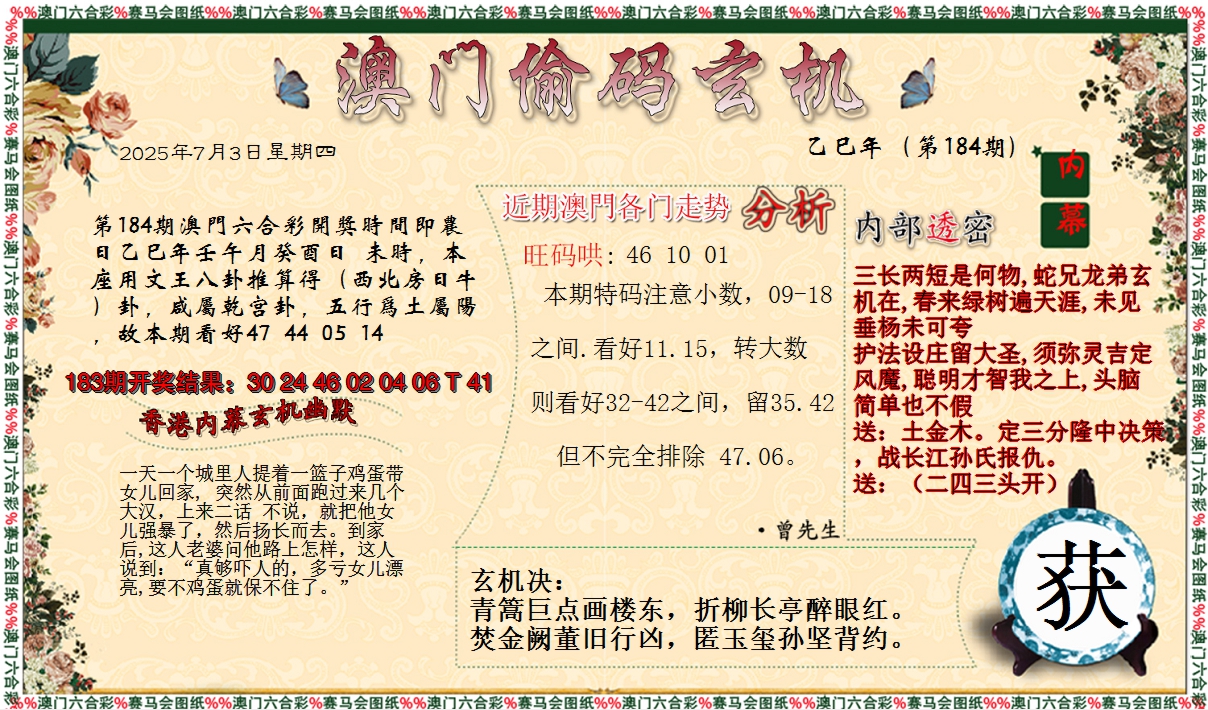 %%澳门六合彩%赛马会图纸%%澳门六合彩%赛马会图纸%%澳门六合彩%赛马会图纸%%澳门六合彩%赛马会图纸%%澳门六合彩%赛马会图纸%%澳门六合彩%赛马会图纸%%
澳门偷码玄机
2025年7月3日星期四
乙巳年（第184期）
内
幕
第184期澳門六合彩開獎時間即農
日乙巳年壬午月癸酉日 未時，本
座用文王八卦推算得（西北房日牛
）卦，咸屬乾宫卦，五行爲土屬陽
，故本期看好47 44 05 14
183期开奖结果：30 24 46 02 04 06 T 41
香港内幕玄机幽默
一天一个城里人提着一篮子鸡蛋带
女儿回家, 突然从前面跑过来几个
大汉，上来二话 不说，就把他女
儿强暴了，然后扬长而去。到家
后,这人老婆问他路上怎样，这人
说到：“真够吓人的，多亏女儿漂
亮,要不鸡蛋就保不住了。”
近期澳門各门走势 分析
旺码哄: 46 10 01
本期特码注意小数，09-18
之间.看好11.15，转大数
则看好32-42之间，留35.42
但不完全排除 47.06。
·曾先生
内部透密
三长两短是何物,蛇兄龙弟玄
机在,春来绿树遍天涯,未见
垂杨未可夸
护法设庄留大圣,须弥灵吉定
风魔,聪明才智我之上,头脑
简单也不假
送：土金木。定三分隆中决策
，战长江孙氏报仇。
送：（二四三头开）
玄机决：
青篙巨点画楼东，折柳长亭醉眼红。
焚金阙董旧行凶，匿玉玺孙坚背约。
获
%%澳门六合彩%赛马会图纸%%澳门六合彩%赛马会图纸%%澳门六合彩%赛马会图纸%%澳门六合彩%赛马会图纸%%澳门六合彩%赛马会图纸%%澳门六合彩%赛马会图纸%%